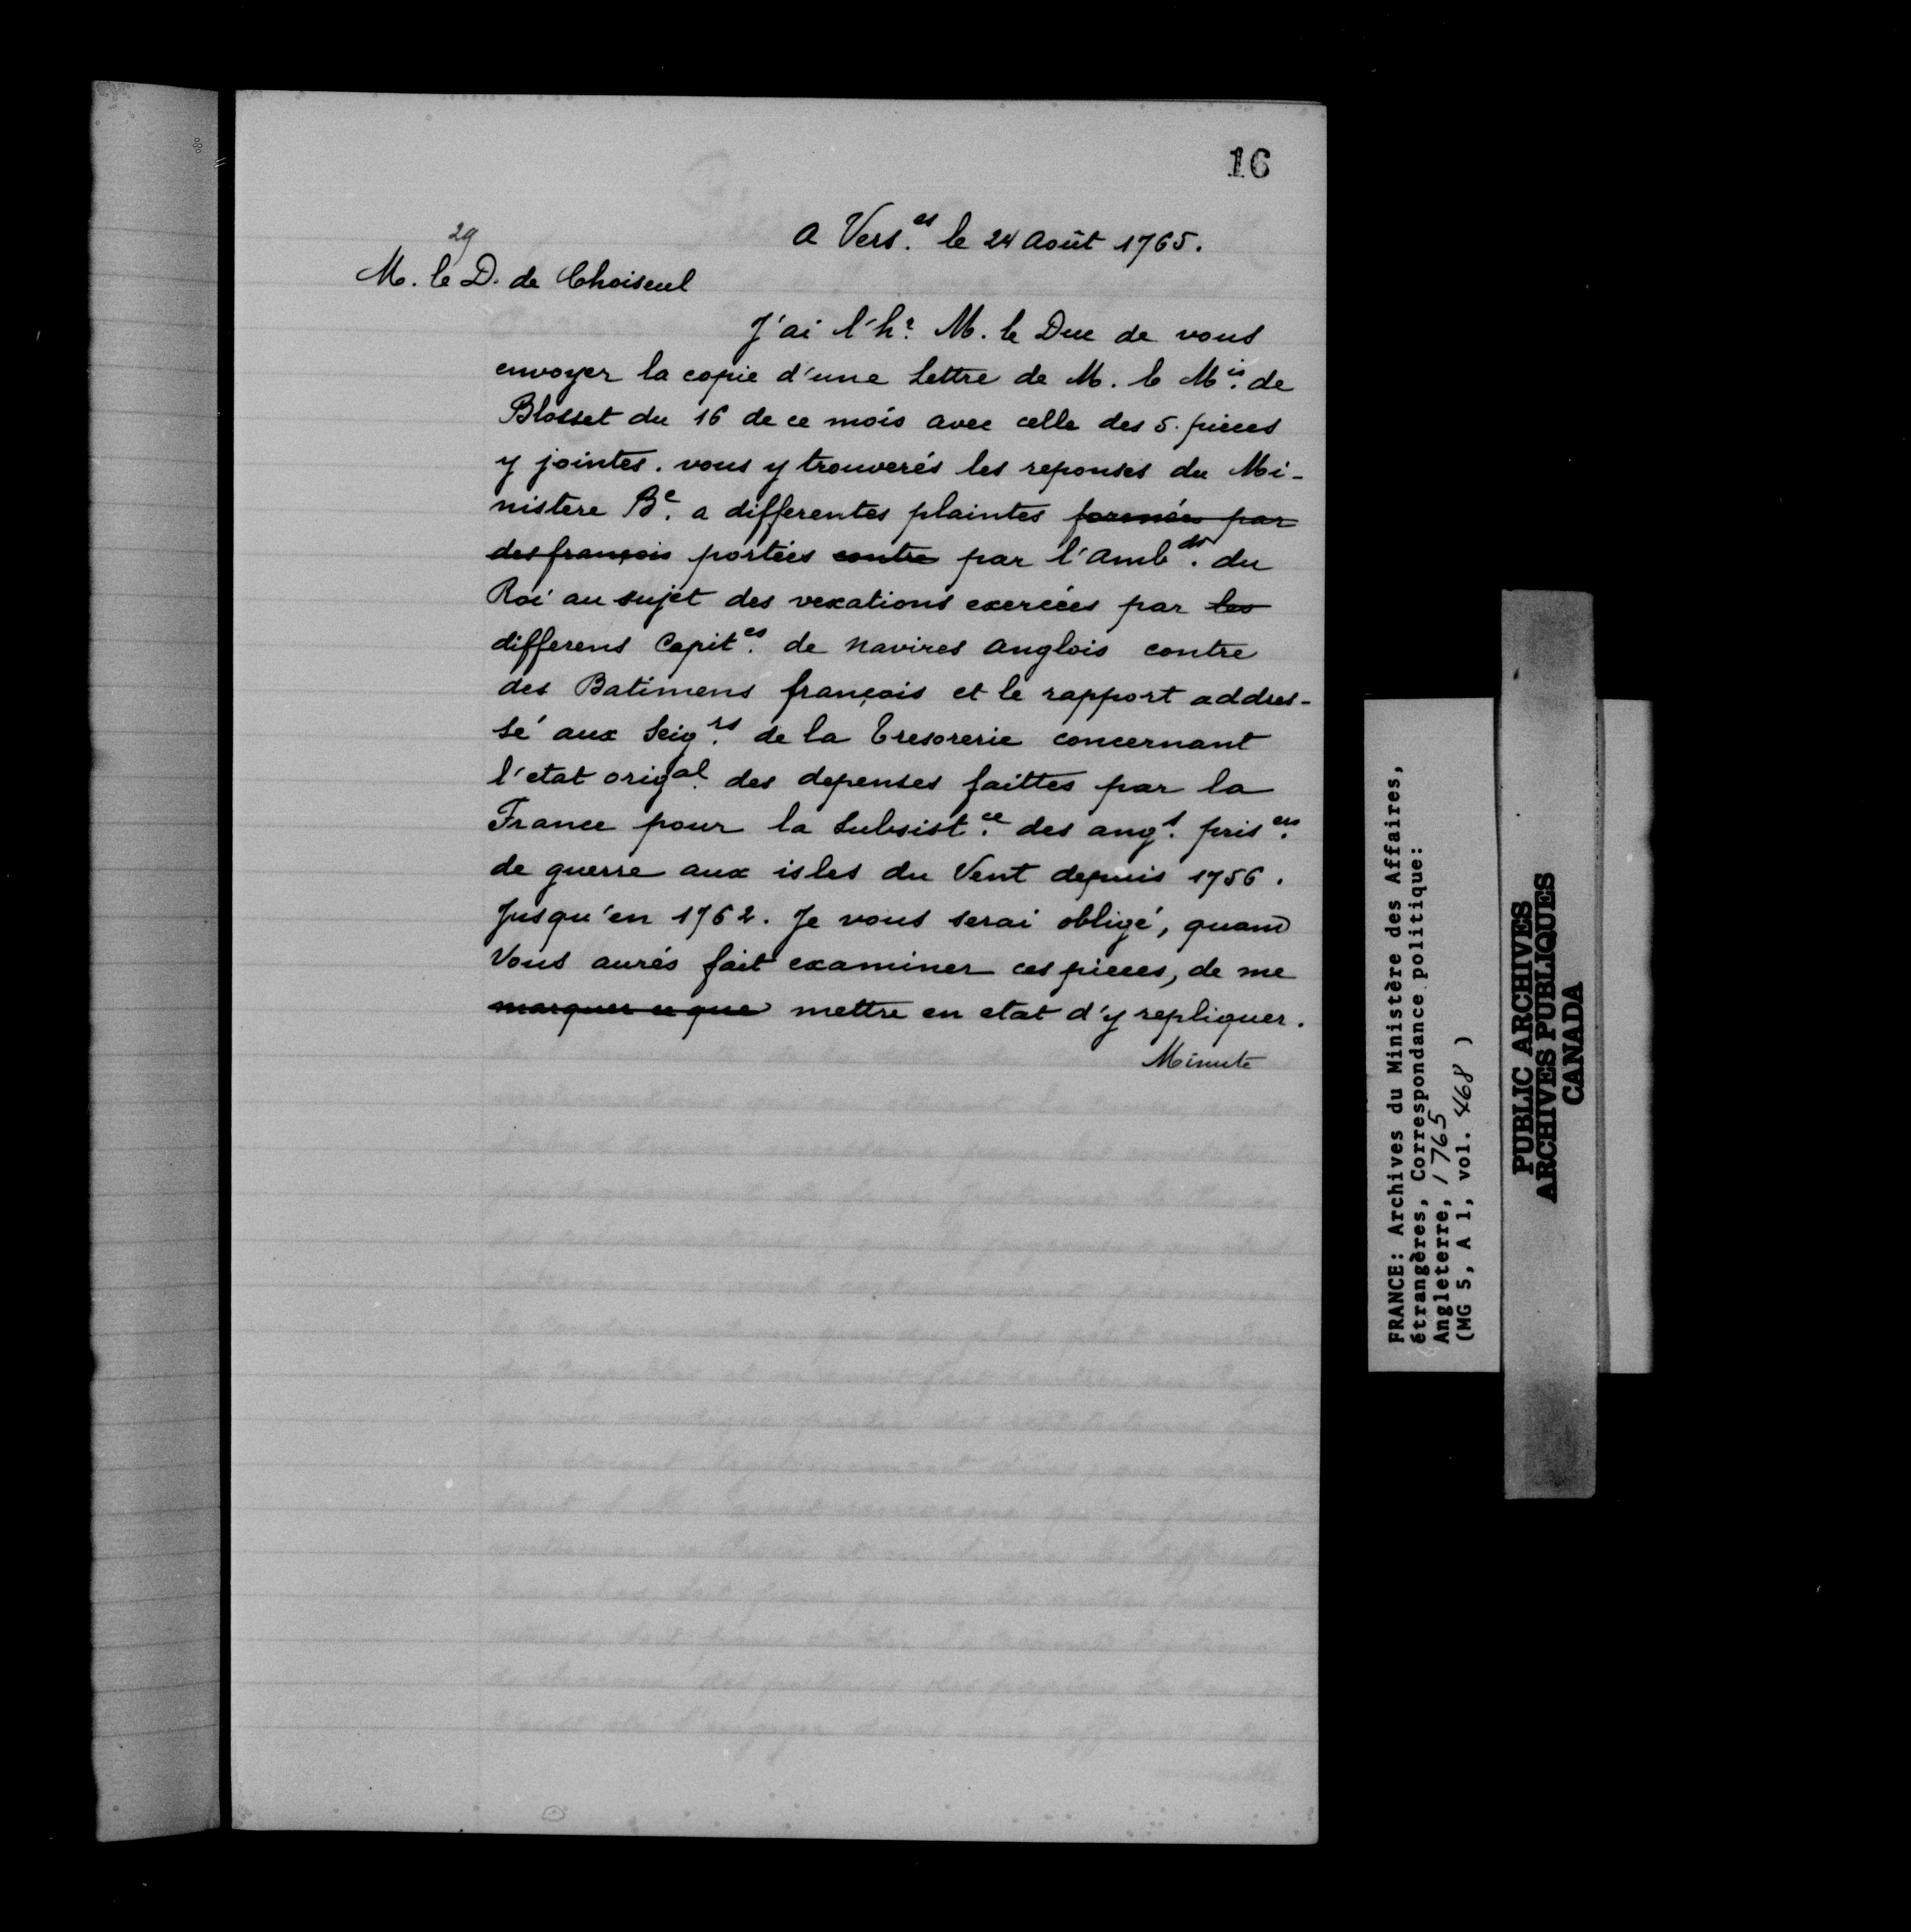 16
A Vers.es le 24 Août 1765.
29
M. le D. de Choiseul
J'ai l'hr. M. le Duc de vous
envoyer la copie d'une lettre de M. le Mis. de
Blosset du 16 de ce mois avec celle des 5. pieces
y jointes. vous y trouverés les reponses du Mi-
nistere Be. a differentes plaintes formées par
des françois portées contre par l'Ambdr. du
Roi au sujet des vexations exercées par les
differens Capites. de Navires Anglois contre
des Batimens françois et le rapport addres-
sé aux Seigrs. de la Tresorerie concernant
l'etat origal. des depenses faittes par la
France pour la Subsistce. des angs. prisers.
de guerre aux isles du Vent depuis 1756.
Jusqu'en 1762. Je vous serai obligé, quand
Vous aurés fait examiner ces pieces, de me
marquer ce que mettre en etat d'y repliquer.
Minute
FRANCE: Archives du Ministère des Affaires,
étrangères, Correspondance politique:
Angleterre, 1765
(MG 5, A 1, vol. 468 )
PUBLIC ARCHIVES
ARCHIVES PUBLIQUES
CANADA